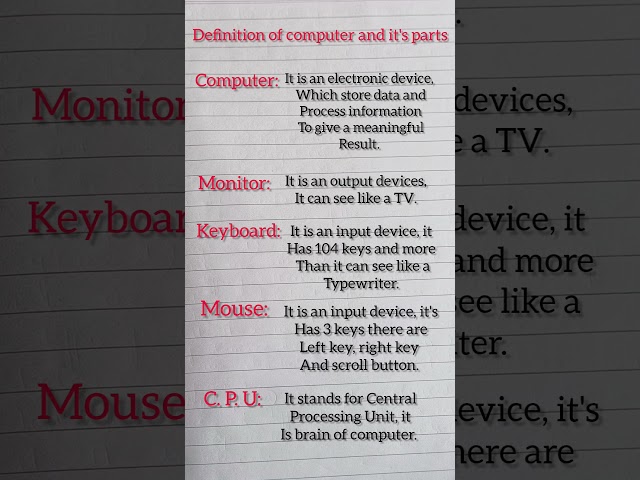 Definition of computer and it's parts
Computer: It is an electronic device,
Which store data and
Process information
To give a meaningful
Result.
Monitor: It is an output devices,
It can see like a TV.
Keyboard: It is an input device, it
Has 104 keys and more
Than it can see like a
Typewriter.
Mouse: It is an input device, it's
Has 3 keys there are
Left key, right key
And scroll button.
C. P. U: It stands for Central
Processing Unit, it
Is brain of computer.
Monitor
Keyboar
Mouse
devices,
e a TV.
device, it
and more
ee like a
ter.
evice, it's
here are